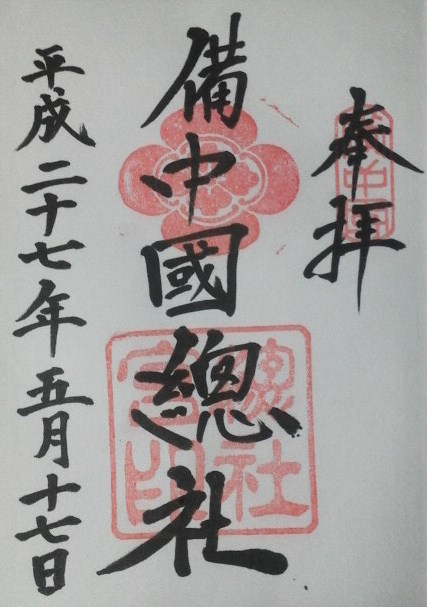 奉拝
備中國總社
平成二十七年五月十七日
總社
宮印